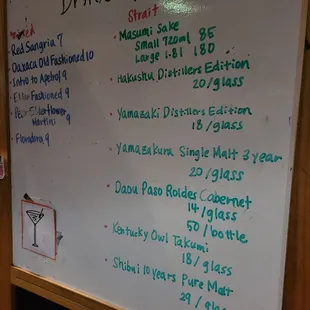 Mixed
Red Sangria 7
Oaxaca Old Fashioned 10
Intro to Aperol 9
Elder Fashioned 9
Pear Elderflower
Martini 9
Flondira 9
Strait
Masumi Sake
Small 720ml 85
Large 1.8l 180
Hakushu Distillers Edition
20/glass
Yamazaki Distillers Edition
18/glass
Yamazakura Single Malt 3 year
20/glass
Daou Paso Robles Cabernet
14/glass
50/bottle
Kentucky Owl Takumi
18/glass
Shibui 10 years Pure Malt
29/glass